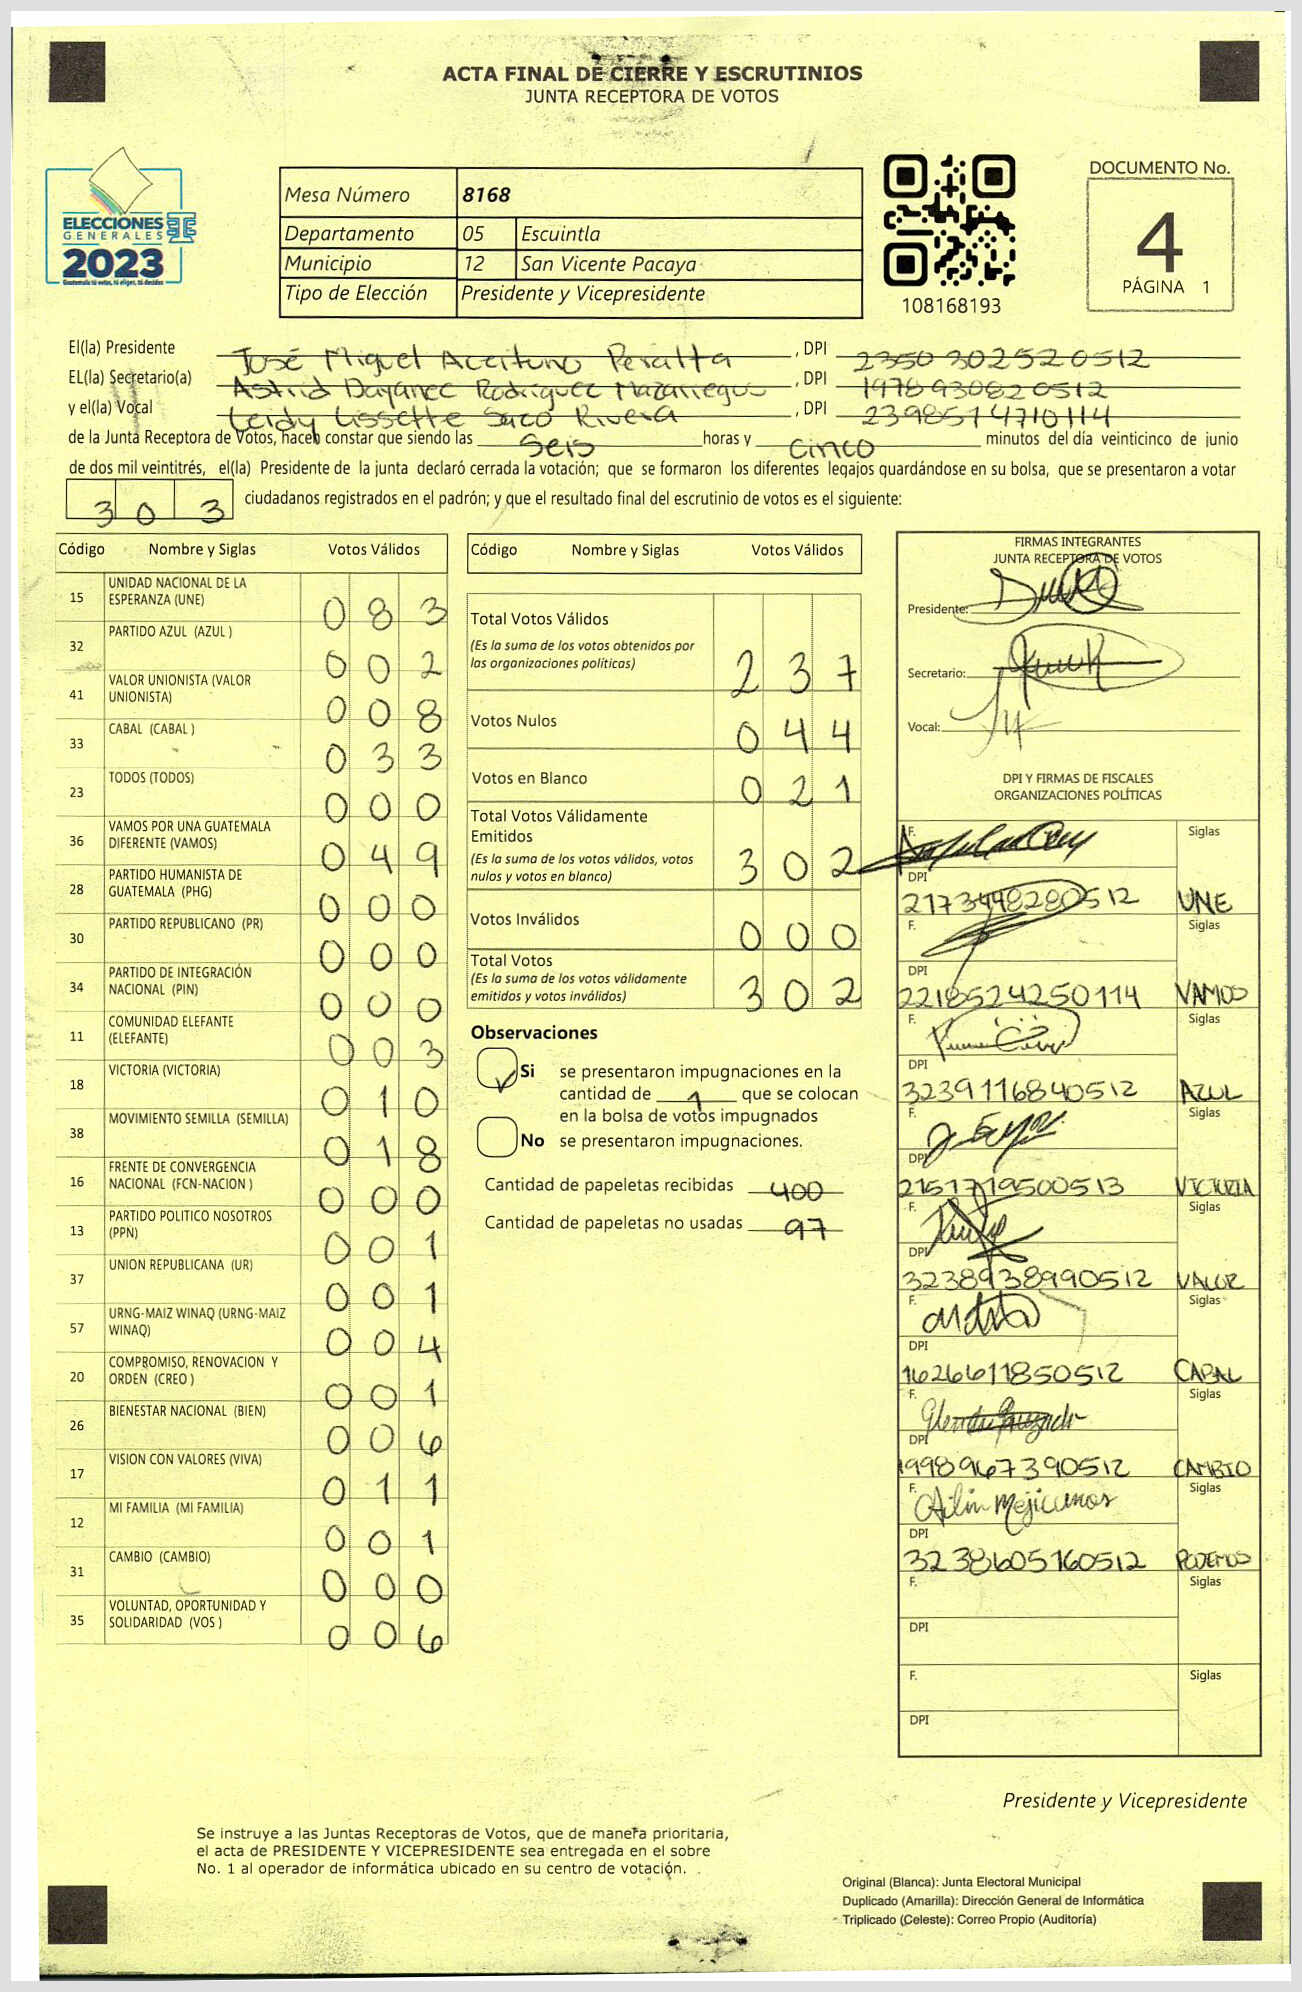 ACTA FINAL DE CIERRE Y ESCRUTINIOS
JUNTA RECEPTORA DE VOTOS
ELECCIONES
GENERALES
2023
Guatemala tú votas, tú eliges, tú decides
Mesa Número 8168
Departamento 05 Escuintla
Municipio 12 San Vicente Pacaya
Tipo de Elección Presidente y Vicepresidente
108168193
DOCUMENTO No.
4
PÁGINA 1
El(la) Presidente José Miguel Aceituno Peralta , DPI 2350 30252 0512
EL(la) Secretario(a) Astrid Dayanec Rodríguez Mazariegos , DPI 1978930820512
y el(la) Vocal Leidy Lissette Saco Rivera , DPI 2398514710114
de la Junta Receptora de Votos, hacen constar que siendo las Seis horas y cinco minutos del día veinticinco de junio
de dos mil veintitrés, el(la) Presidente de la junta declaró cerrada la votación; que se formaron los diferentes legajos guardándose en su bolsa, que se presentaron a votar
303 ciudadanos registrados en el padrón; y que el resultado final del escrutinio de votos es el siguiente:
Código Nombre y Siglas Votos Válidos
15 UNIDAD NACIONAL DE LA ESPERANZA (UNE) 083
32 PARTIDO AZUL (AZUL ) 002
41 VALOR UNIONISTA (VALOR UNIONISTA) 008
33 CABAL (CABAL ) 033
23 TODOS (TODOS) 000
36 VAMOS POR UNA GUATEMALA DIFERENTE (VAMOS) 049
28 PARTIDO HUMANISTA DE GUATEMALA (PHG) 000
30 PARTIDO REPUBLICANO (PR) 000
34 PARTIDO DE INTEGRACIÓN NACIONAL (PIN) 000
11 COMUNIDAD ELEFANTE (ELEFANTE) 003
18 VICTORIA (VICTORIA) 010
38 MOVIMIENTO SEMILLA (SEMILLA) 018
16 FRENTE DE CONVERGENCIA NACIONAL (FCN-NACION ) 000
13 PARTIDO POLITICO NOSOTROS (PPN) 001
37 UNION REPUBLICANA (UR) 001
57 URNG-MAIZ WINAQ (URNG-MAIZ WINAQ) 004
20 COMPROMISO, RENOVACION Y ORDEN (CREO ) 001
26 BIENESTAR NACIONAL (BIEN) 006
17 VISION CON VALORES (VIVA) 011
12 MI FAMILIA (MI FAMILIA) 001
31 CAMBIO (CAMBIO) 000
35 VOLUNTAD, OPORTUNIDAD Y SOLIDARIDAD (VOS ) 006
Código Nombre y Siglas Votos Válidos
Total Votos Válidos 237
(Es la suma de los votos obtenidos por
las organizaciones políticas)
Votos Nulos 044
Votos en Blanco 021
Total Votos Válidamente
Emitidos 302
(Es la suma de los votos válidos, votos
nulos y votos en blanco)
Votos Inválidos 000
Total Votos 302
(Es la suma de los votos válidamente
emitidos y votos inválidos)
Observaciones
Si se presentaron impugnaciones en la
cantidad de 1 que se colocan
en la bolsa de votos impugnados
No se presentaron impugnaciones.
Cantidad de papeletas recibidas 400
Cantidad de papeletas no usadas 97
FIRMAS INTEGRANTES
JUNTA RECEPTORA DE VOTOS
Presidente:
Secretario:
Vocal:
DPI Y FIRMAS DE FISCALES
ORGANIZACIONES POLÍTICAS
F. Siglas
DPI
2173448280512 UNE
F. Siglas
DPI
2218524250114 VAMOS
F. Siglas
DPI
3239116840512 AZUL
F. Siglas
DPI
2151719500513 VICTORIA
F. Siglas
DPI
3238938990512 VALOR
F. Siglas
DPI
1626611850512 CABAL
F. Siglas
DPI
1998967390512 CAMBIO
F. Ailin Mejicanos Siglas
DPI
3238605160512 PODEMOS
F. Siglas
DPI
F. Siglas
DPI
Presidente y Vicepresidente
Se instruye a las Juntas Receptoras de Votos, que de manera prioritaria,
el acta de PRESIDENTE Y VICEPRESIDENTE sea entregada en el sobre
No. 1 al operador de informática ubicado en su centro de votación.
Original (Blanca): Junta Electoral Municipal
Duplicado (Amarilla): Dirección General de Informática
Triplicado (Celeste): Correo Propio (Auditoría)